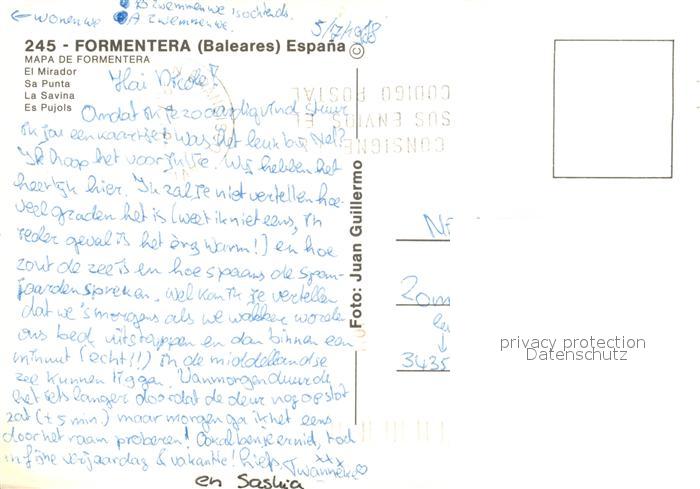 B zwemmen we 's ochtends.
← wonen we A zwemmen we.
5/7/1988
245 - FORMENTERA (Baleares) España ©
MAPA DE FORMENTERA
El Mirador
Sa Punta
La Savina
Es Pujols
Hai Nicole!
Omdat ik je zo aardig vind stuur
ik jou een kaartje! Was het leuk bij Nel?
Ik hoop het voor jullie. Wij hebben het
heerlijk hier. Ik zal je niet vertellen hoe-
veel graden het is (weet ik niet eens, in
ieder geval is het èrg warm!) en hoe
zout de zee is en hoe spaans de Span-
jaarden spreken. Wel kan ik je vertellen
dat we 's morgens als we wakker worden
ons bed uitstappen en dan binnen een
minuut (echt!!) in de middellandse
zee kunnen liggen. Vanmorgen duurde
het iets langer doordat de deur nog op slot
zat (± 5 min.) maar morgen ga ik het eens
door het raam proberen! Ook al ben je er niet, toch
een fijne verjaardag & vakantie! liefs, Jwanneke
xxx
en Saskia
Foto: Juan Guillermo
CONSIGNE
SUS ENVIOS EL
CODIGO POSTAL
Ni
Zom
3435
privacy protection
Datenschutz